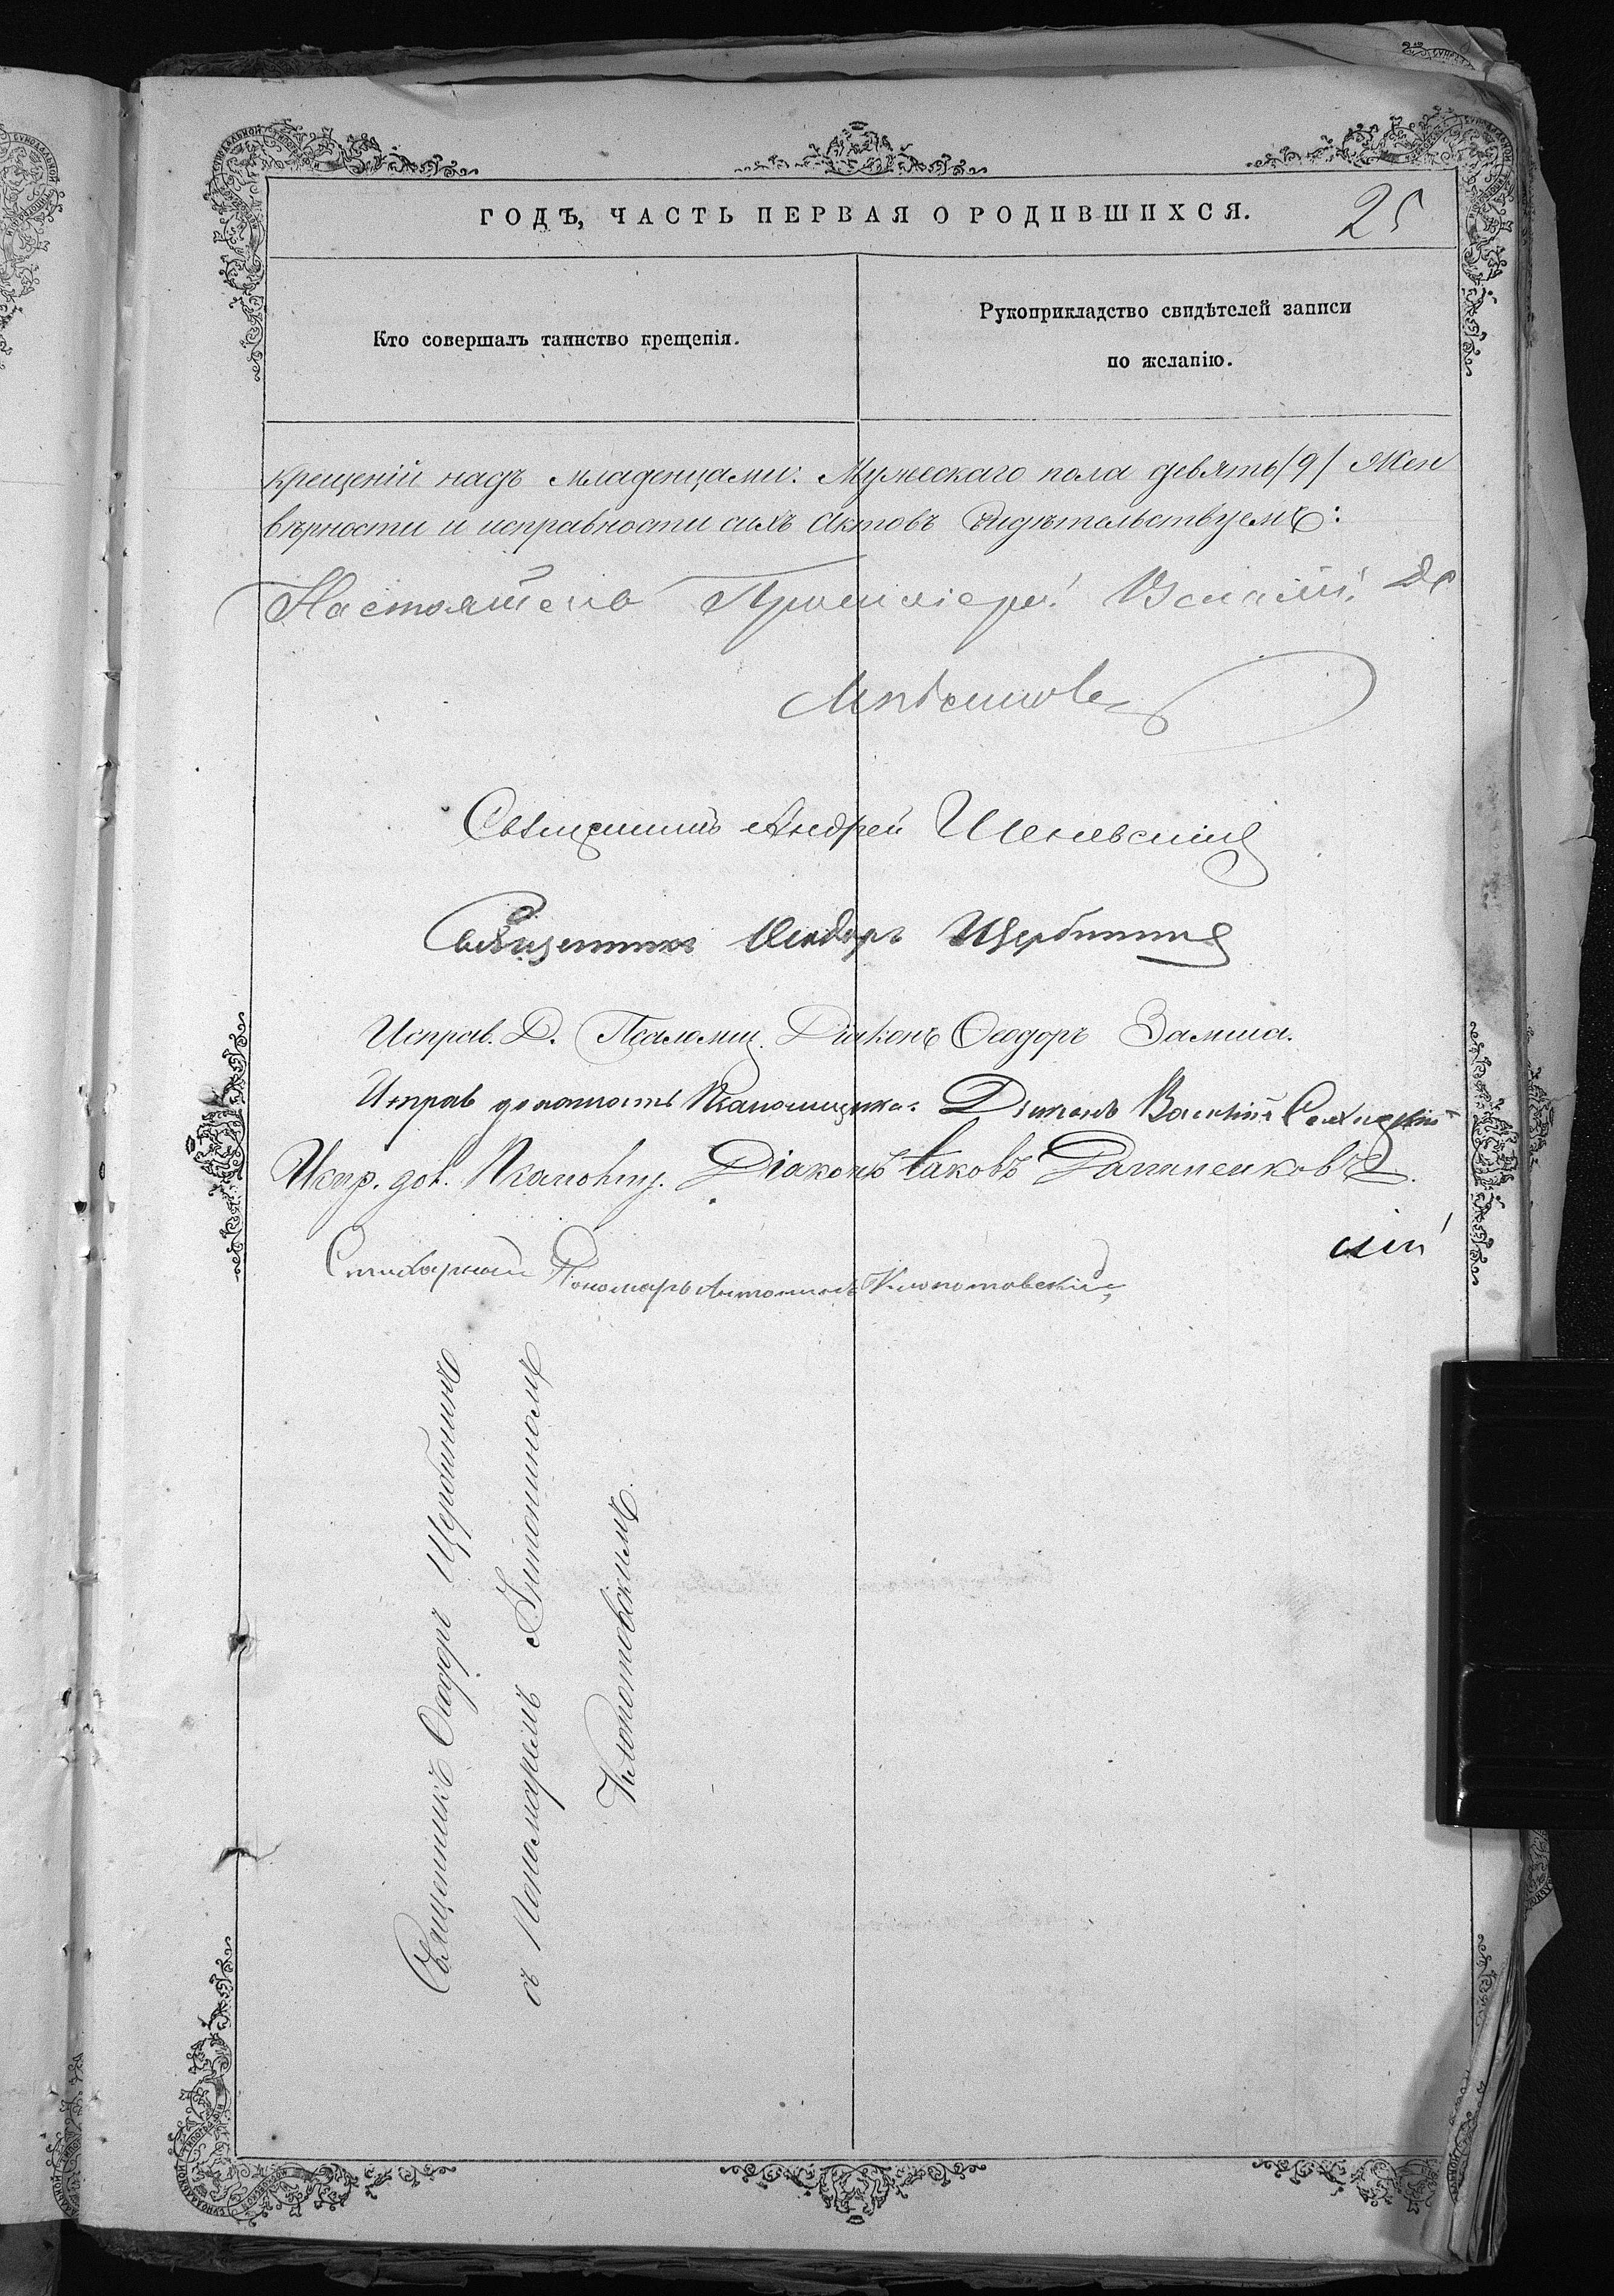 ГОДЪ, ЧАСТЬ ПЕРВАЯ О РОДИВШИХСЯ.
25
Кто совершалъ таинство крещенія.
Рукоприкладство свидѣтелей записи
по желанію.
крещеній надъ младенцами: Мужескаго пола девять /9/ Жен
вѣрности и исправности сихъ актовъ свидѣтельствуемъ:
Протоіерей Василій
Священникъ Андрей
Священникъ Ѳеодоръ Щербининъ
Исправ. Д. Псаломщ. Діаконъ Ѳеодоръ
Исправ должность Псаломщика. Діаконъ Василій
Испр. дол. Псаломщ. Діаконъ Іаковъ
Стихарный Пономарь Антонинъ Клопотовскій
Священникъ Ѳеодоръ Щербининъ
съ Пономаремъ Антониномъ
Клопотовскимъ.